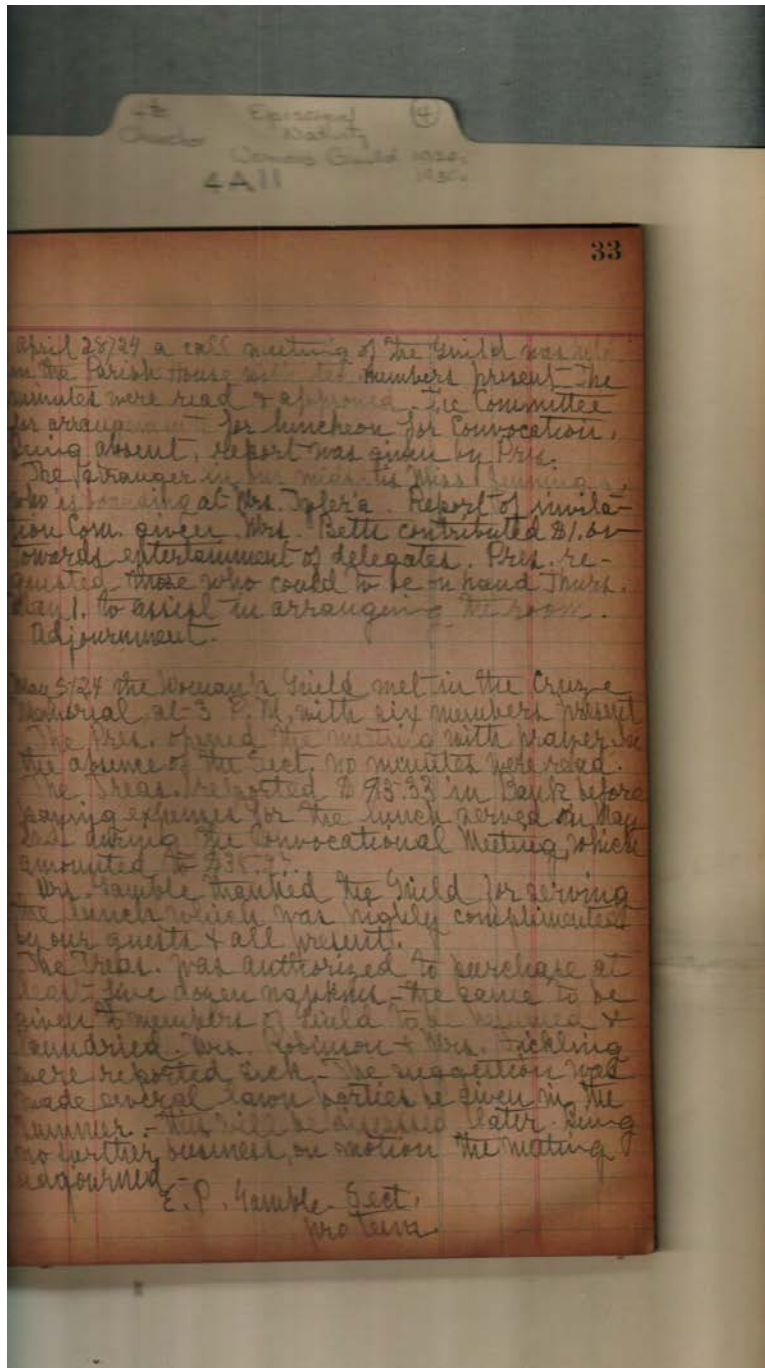 4th Episcopal ④
Church Nativity
Womens Guild 1920s
4A11 1930s
33
April 28/24 a call meeting of the Guild was held
in the Parish House with ten members present. The
minutes were read & approved. The Committee
for arrangements for luncheon for Convocation,
being absent, report was given by Pres.
The Stranger in our midst is Miss
who is boarding at Mrs. Report of invita-
tion Com. given. Mrs. Betts contributed $1.00
towards entertainment of delegates. Pres. re-
quested those who could to be on hand Thurs.
May 1. to assist in arranging the room.
Adjournment.
May 5/24 the Woman's Guild met in the Cruse
Memorial at 3 P.M. with six members present
The Pres. opened the meeting with prayer. In
the absence of the Sect. no minutes were read.
The Treas. reported $95.33 in Bank before
paying expenses for the lunch served on May
during the Convocational Meeting, which
amounted to
Mrs. Gamble thanked the Guild for serving
the lunch which was highly complimented
by our guests & all present.
The Treas. was authorized to purchase at
least five dozen napkins - the same to be
given to members of Guild to be hemmed &
laundried. Mrs. Robinson & Mrs. Fickling
were reported sick - The suggestion was
made several lawn parties be given in the
summer. - this will be discussed later. Being
no further business, on motion the meeting
adjourned.
E. P. Gamble - Sect.
pro tem.